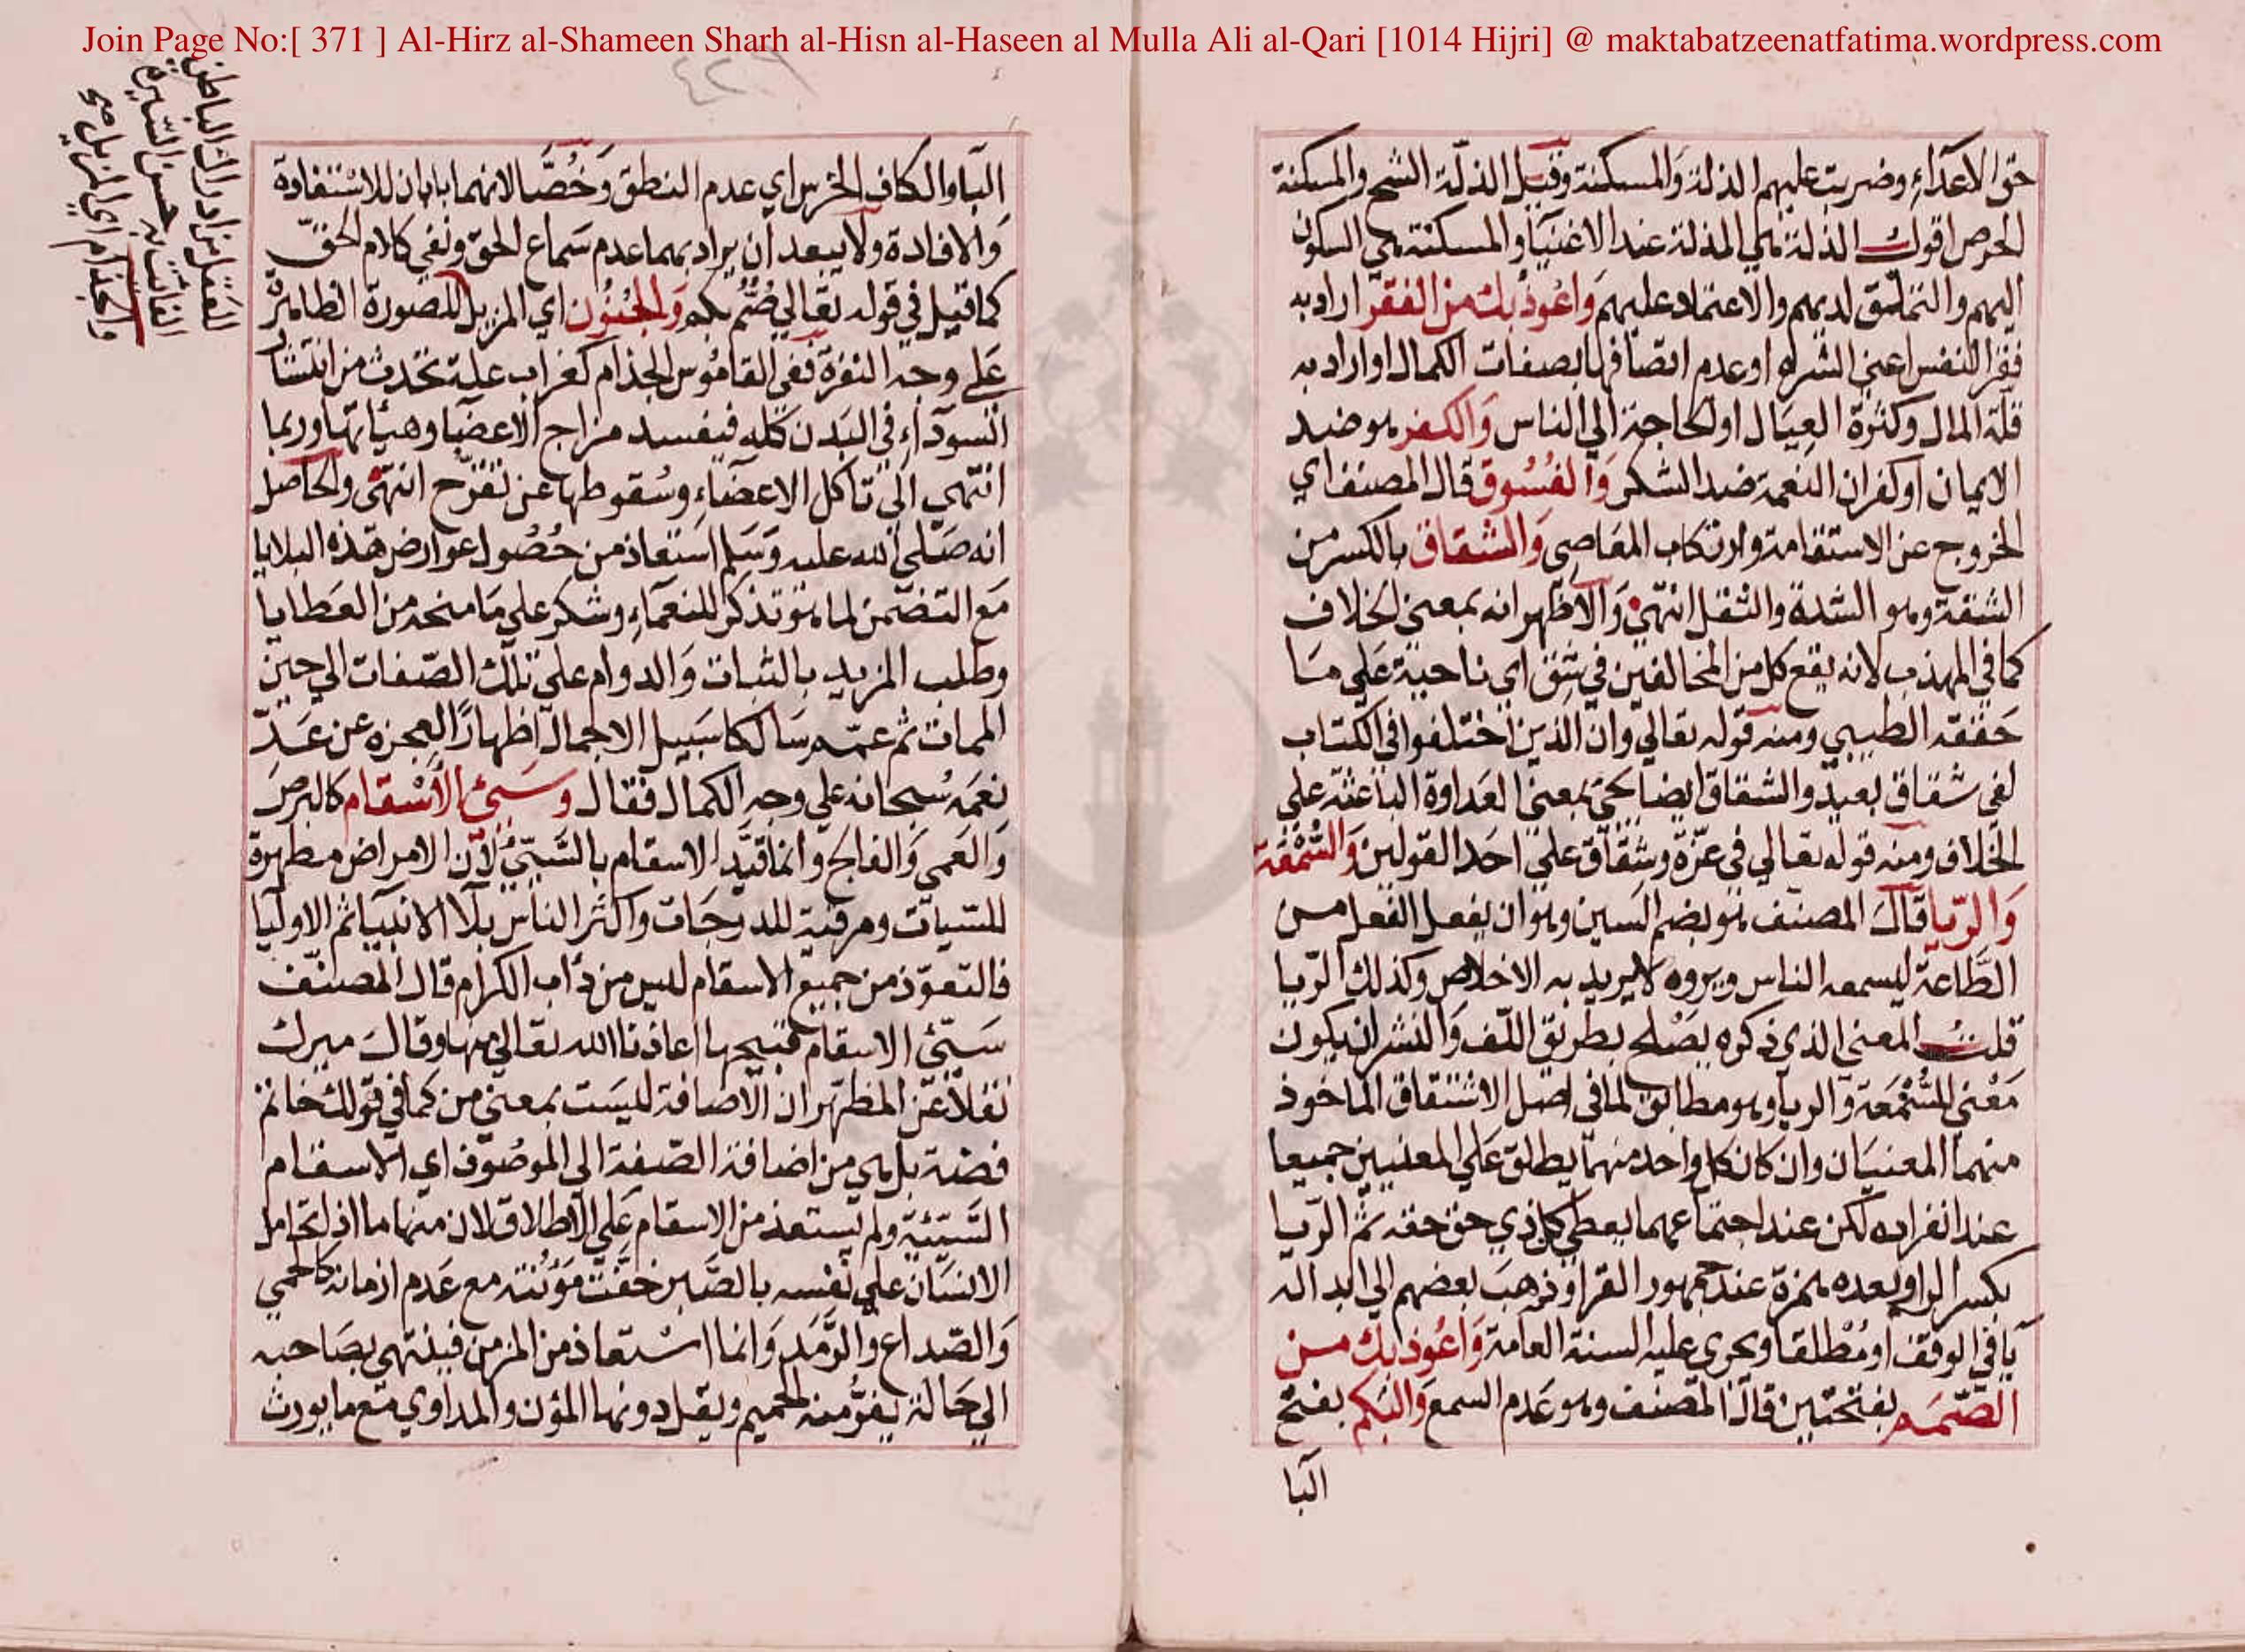 Join Page No:[ 371 ] Al-Hirz al-Shameen Sharh al-Hisn al-Haseen al Mulla Ali al-Qari [1014 Hijri] @ maktabatzeenatfatima.wordpress.com
حق الاعداء وضربت عليهم الذلة والمسكنة وقيل الذلة الشح والمسكنة
الحرص اقول الذلة هي المذلة عند الاغنيا والمسكنة هي السكون
اليهم والتملق لديهم والاعتماد عليهم واعوذ بك من الفقر اراد به
فقر النفس اعني الشره او عدم اتصافها بصفات الكمال او اراد به
قلة المال وكثرة العيال او الحاجة الي الناس والكفر هو ضد
الايمان او كفران النعمة ضد الشكر والفسوق قال المصنف اي
الخروج عن الاستقامة وارتكاب المعاصي والشقاق بالكسر من
الشقة وهو الشدة والثقل انتهي والاظهر انه بمعني الخلاف
كما في المهذب لانه يقع كل من المخالفين في شق اي ناحية علي ما
حققه الطيبي ومنه قوله تعالي وان الذين اختلفوا في الكتاب
لفي شقاق بعيد والشقاق ايضا يجئ بمعني العداوة الباعثة علي
الخلاف ومنه قوله تعالي في عزة وشقاق علي احد القولين والسمعة
والريا قال المصنف هو بضم السين وهو ان يفعل الفعل من
الطاعة ليسمعه الناس ويروه لا يريد به الاخلاص وكذلك الريا
قلت المعني الذي ذكره يصلح بطريق اللف والنشر ان يكون
معني للسمعة والريا وهو مطابق لما في اصل الاشتقاق الماخوذ
منهما المعنيان وان كان كل واحد منهما يطلق علي المعنيين جميعا
عند انفراده لكن عند اجتماعهما يعطي كل ذي حق حقه ثم الريا
بكسر الرا وبعده همزة عند جمهور القرا وذهب بعضهم الي ابداله
يا في الوقف او مطلقا ويجري عليه السنة العامة واعوذ بك من
الصمم بفتحتين قال المصنف وهو عدم السمع والبكم بفتح
البا
البا والكاف الخرس اي عدم النطق وخصا لانهما بابان للاستفادة
والافادة ولا يبعد ان يراد بهما عدم سماع الحق ونفي كلام الحق
كما قيل في قوله تعالي صم بكم والجنون اي المزيل للصورة الظاهرة
علي وجه النفرة ففي القاموس الجذام كغراب علة تحدث من انتشار
السوداء في البدن كله فيفسد مزاج الاعضا وهيئاتها وربما
انتهي الي تاكل الاعضاء وسقوطها عن تقرح انتهي والحاصل
انه صلي الله عليه وسلم استعاذ من حصول عوارض هذه البلايا
مع التضمن لما هو تذكر للنعماء وشكر علي ما منحه من العطايا
وطلب المزيد بالثبات والدوام علي تلك الصفات الي حين
الممات ثم عمم سالكا سبيل الاجمال اظهارا لعجزه عن عد
نعمه سبحانه علي وجه الكمال فقال وسيئ الاسقام كالبرص
والعمي والفالج وانما قيد الاسقام بالسيئ لان الامراض مطهرة
للسيات ومرقية للدرجات واكثر الناس بلا الانبيا ثم الاوليا
فالتعوذ من جميع الاسقام ليس من داب الكرام قال المصنف
سيئ الاسقام قبيحها اعاذنا الله تعالي منها وقال ميرك
نقلا عن المظهر ان الاضافة ليست بمعني من كما في قولك خاتم
فضة بل هي من اضافة الصفة الي الموصوف اي الاسقام
السيئة ولم يستعذ من الاسقام علي الاطلاق لان منها ما اذا تحامل
الانسان علي نفسه بالصبر خفت مؤنته مع عدم ازمانه كالحمي
والصداع والرمد وانما استعاذ من المزمن فينتهي بصاحبه
الي حالة يفر منه الحميم ويقل دونها المؤن والمداوي مع ما يورث
العقل من ادراك الباطن
والجذام اي المزيل صح